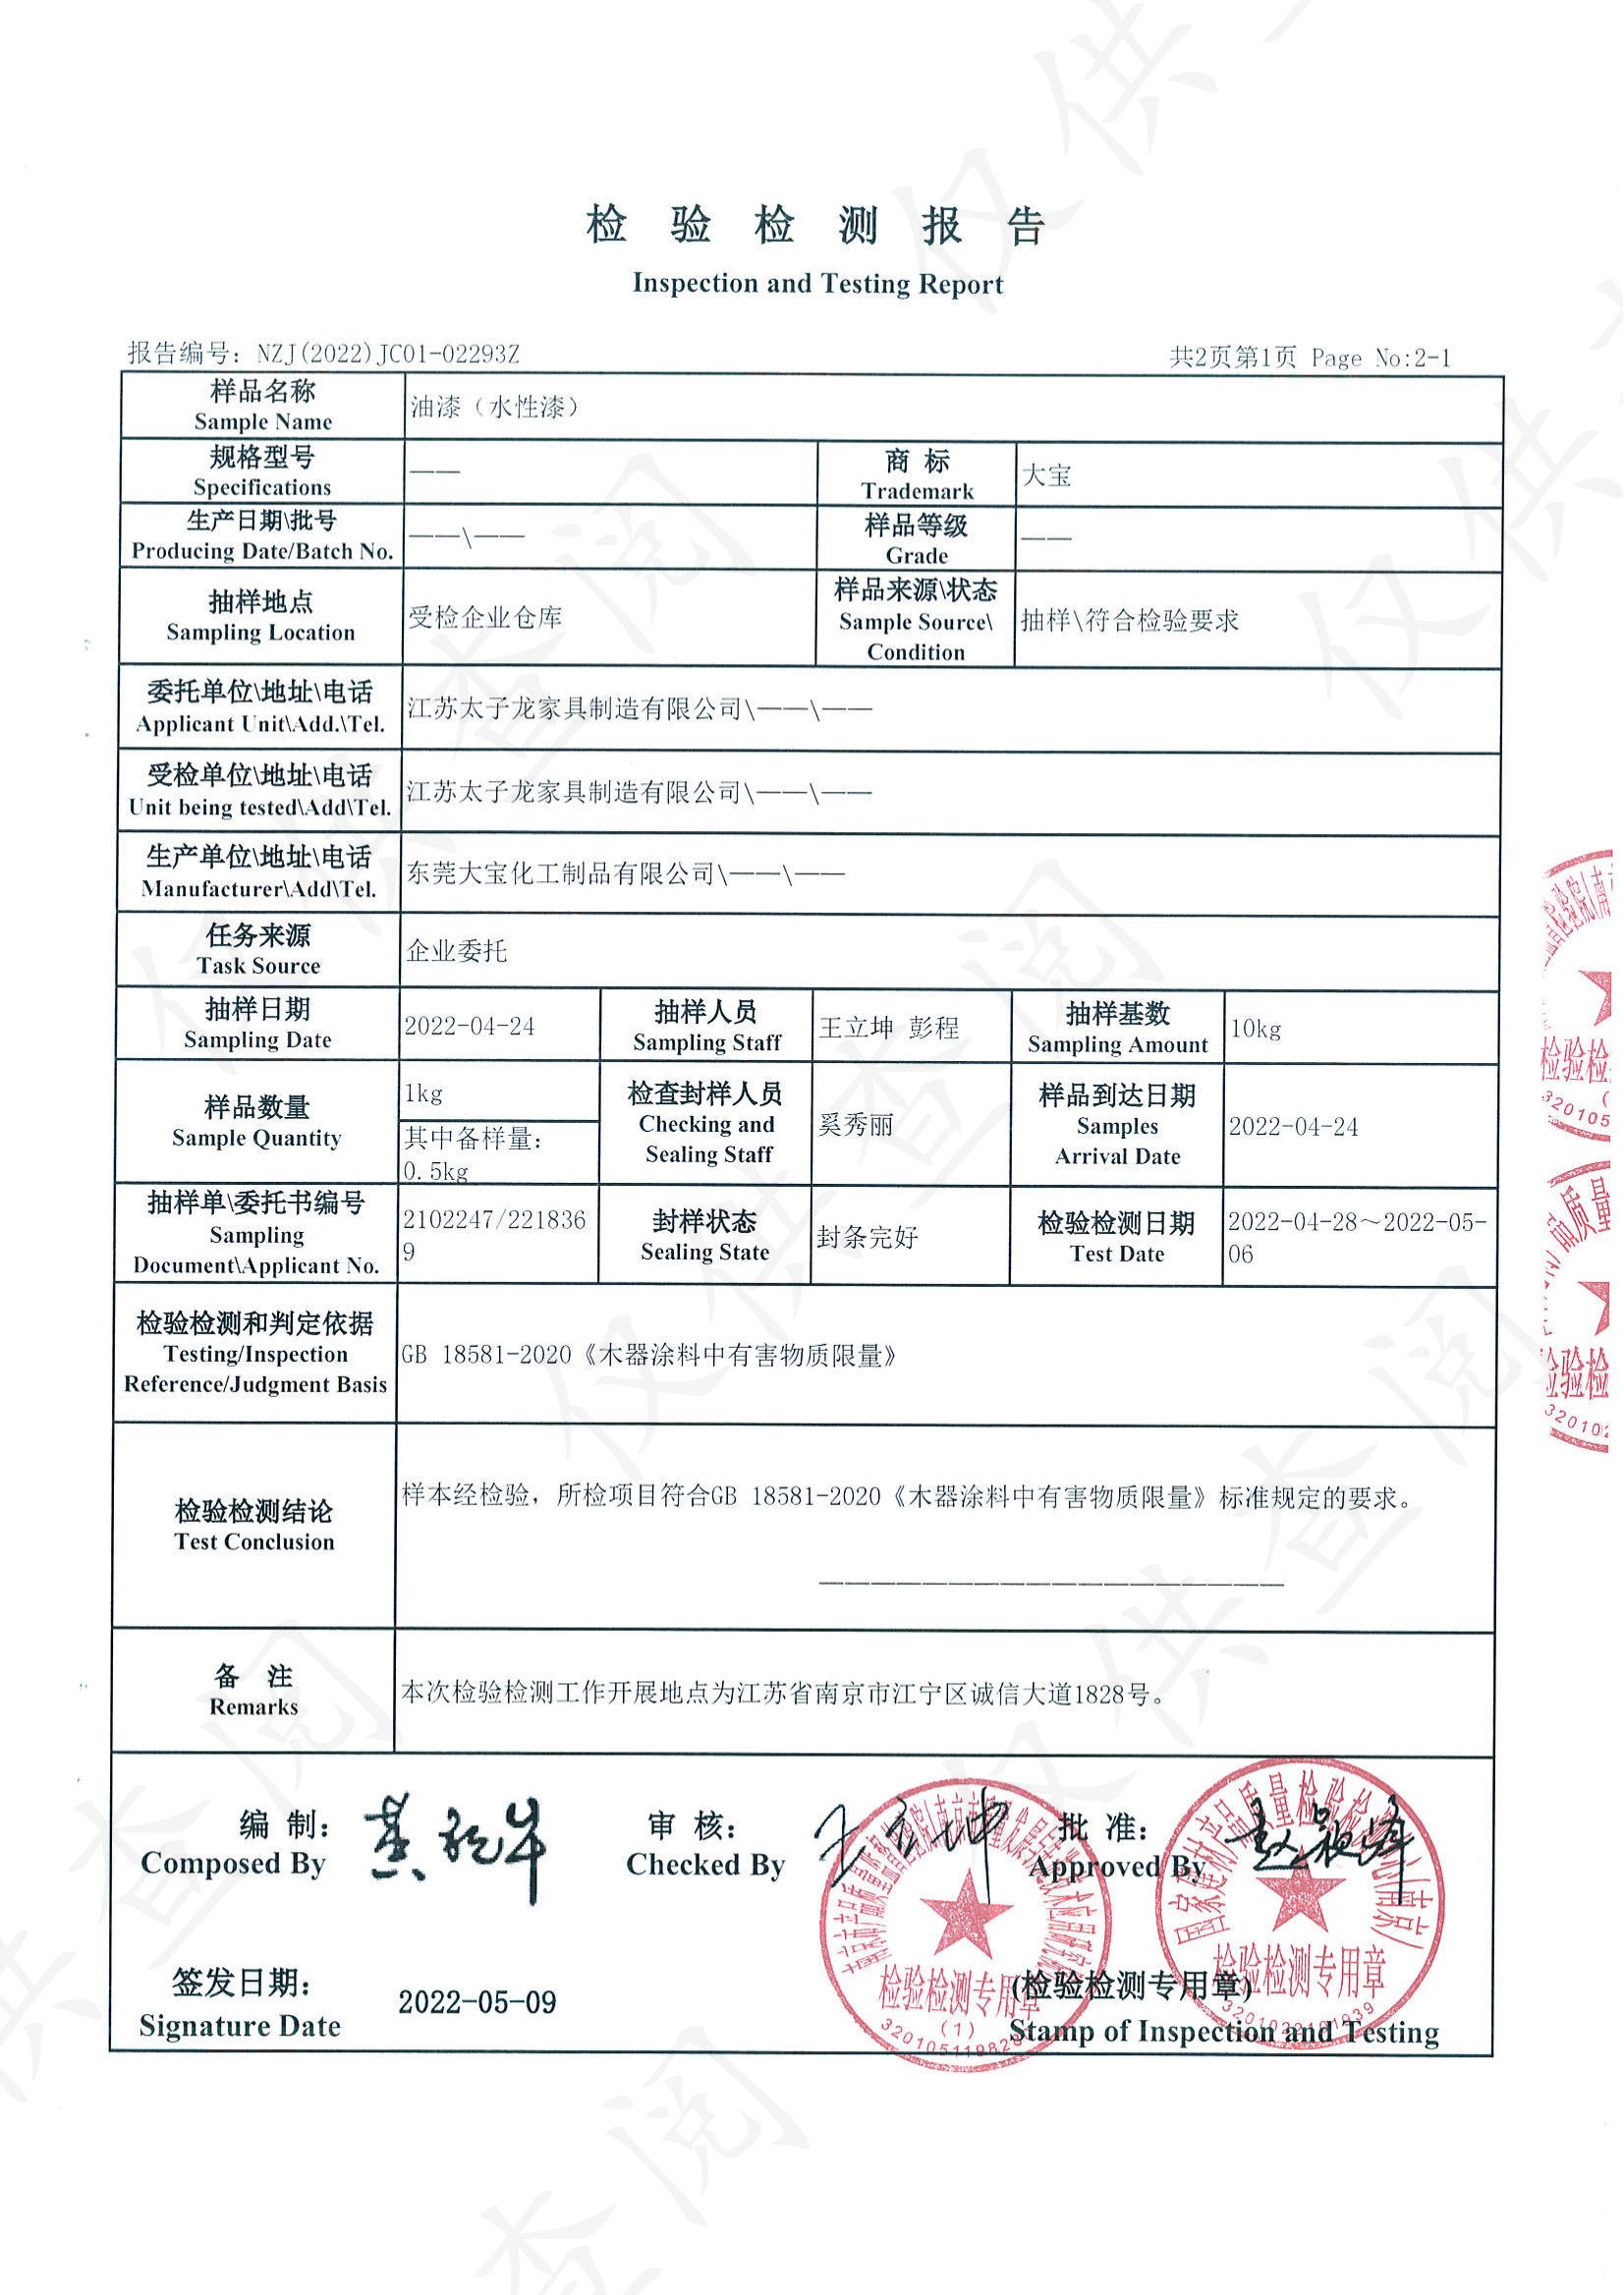 检验检测报告
Inspection and Testing Report
报告编号：NZJ(2022)JC01-02293Z
共2页第1页 Page No:2-1
样品名称
Sample Name
油漆（水性漆）
规格型号
Specifications
——
商 标
Trademark
大宝
生产日期\批号
Producing Date/Batch No.
——\——
样品等级
Grade
——
抽样地点
Sampling Location
受检企业仓库
样品来源\状态
Sample Source\
Condition
抽样\符合检验要求
委托单位\地址\电话
Applicant Unit\Add.\Tel.
江苏太子龙家具制造有限公司\——\——
受检单位\地址\电话
Unit being tested\Add\Tel.
江苏太子龙家具制造有限公司\——\——
生产单位\地址\电话
Manufacturer\Add\Tel.
东莞大宝化工制品有限公司\——\——
任务来源
Task Source
企业委托
抽样日期
Sampling Date
2022-04-24
抽样人员
Sampling Staff
王立坤 彭程
抽样基数
Sampling Amount
10kg
样品数量
Sample Quantity
1kg
其中备样量：
0.5kg
检查封样人员
Checking and
Sealing Staff
奚秀丽
样品到达日期
Samples
Arrival Date
2022-04-24
抽样单\委托书编号
Sampling
Document\Applicant No.
2102247/221836
9
封样状态
Sealing State
封条完好
检验检测日期
Test Date
2022-04-28～2022-05-
06
检验检测和判定依据
Testing/Inspection
Reference/Judgment Basis
GB 18581-2020《木器涂料中有害物质限量》
检验检测结论
Test Conclusion
样本经检验，所检项目符合GB 18581-2020《木器涂料中有害物质限量》标准规定的要求。
备 注
Remarks
本次检验检测工作开展地点为江苏省南京市江宁区诚信大道1828号。
编 制：
Composed By
审 核：
Checked By
王立坤
批 准：
Approved By
签发日期：
Signature Date
2022-05-09
(检验检测专用章)
Stamp of Inspection and Testing
检验检测专用章
(1)
国家建材产品质量检验检测中心(南京)
检验检测专用章
仅供查阅
仅供查阅
仅供查阅